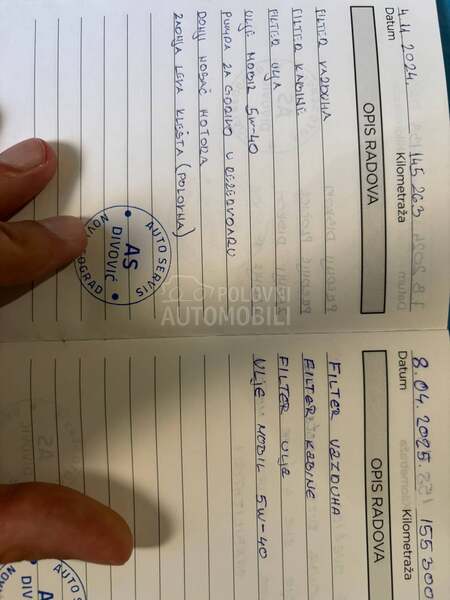 Datum Kilometraža
4.11.2024. 145 263
OPIS RADOVA
FILTER VAZDUHA
FILTER KABINE
FILTER ULJA
ULJE MOBIL 5W-40
PUMPA ZA GORIVO U REZERVOARU
DONJI NOSAČ MOTORA
ZADNJA LEVA KLEŠTA (POLOVNA)
AUTO SERVIS
AS
DIVOVIĆ
POLOVNI
AUTOMOBILI
Datum Kilometraža
8.04.2025. 155 300
OPIS RADOVA
FILTER VAZDUHA
FILTER KABINE
FILTER ULJA
ULJE MOBIL 5W-40
AUTO SERVIS
AS
DIVOVIĆ